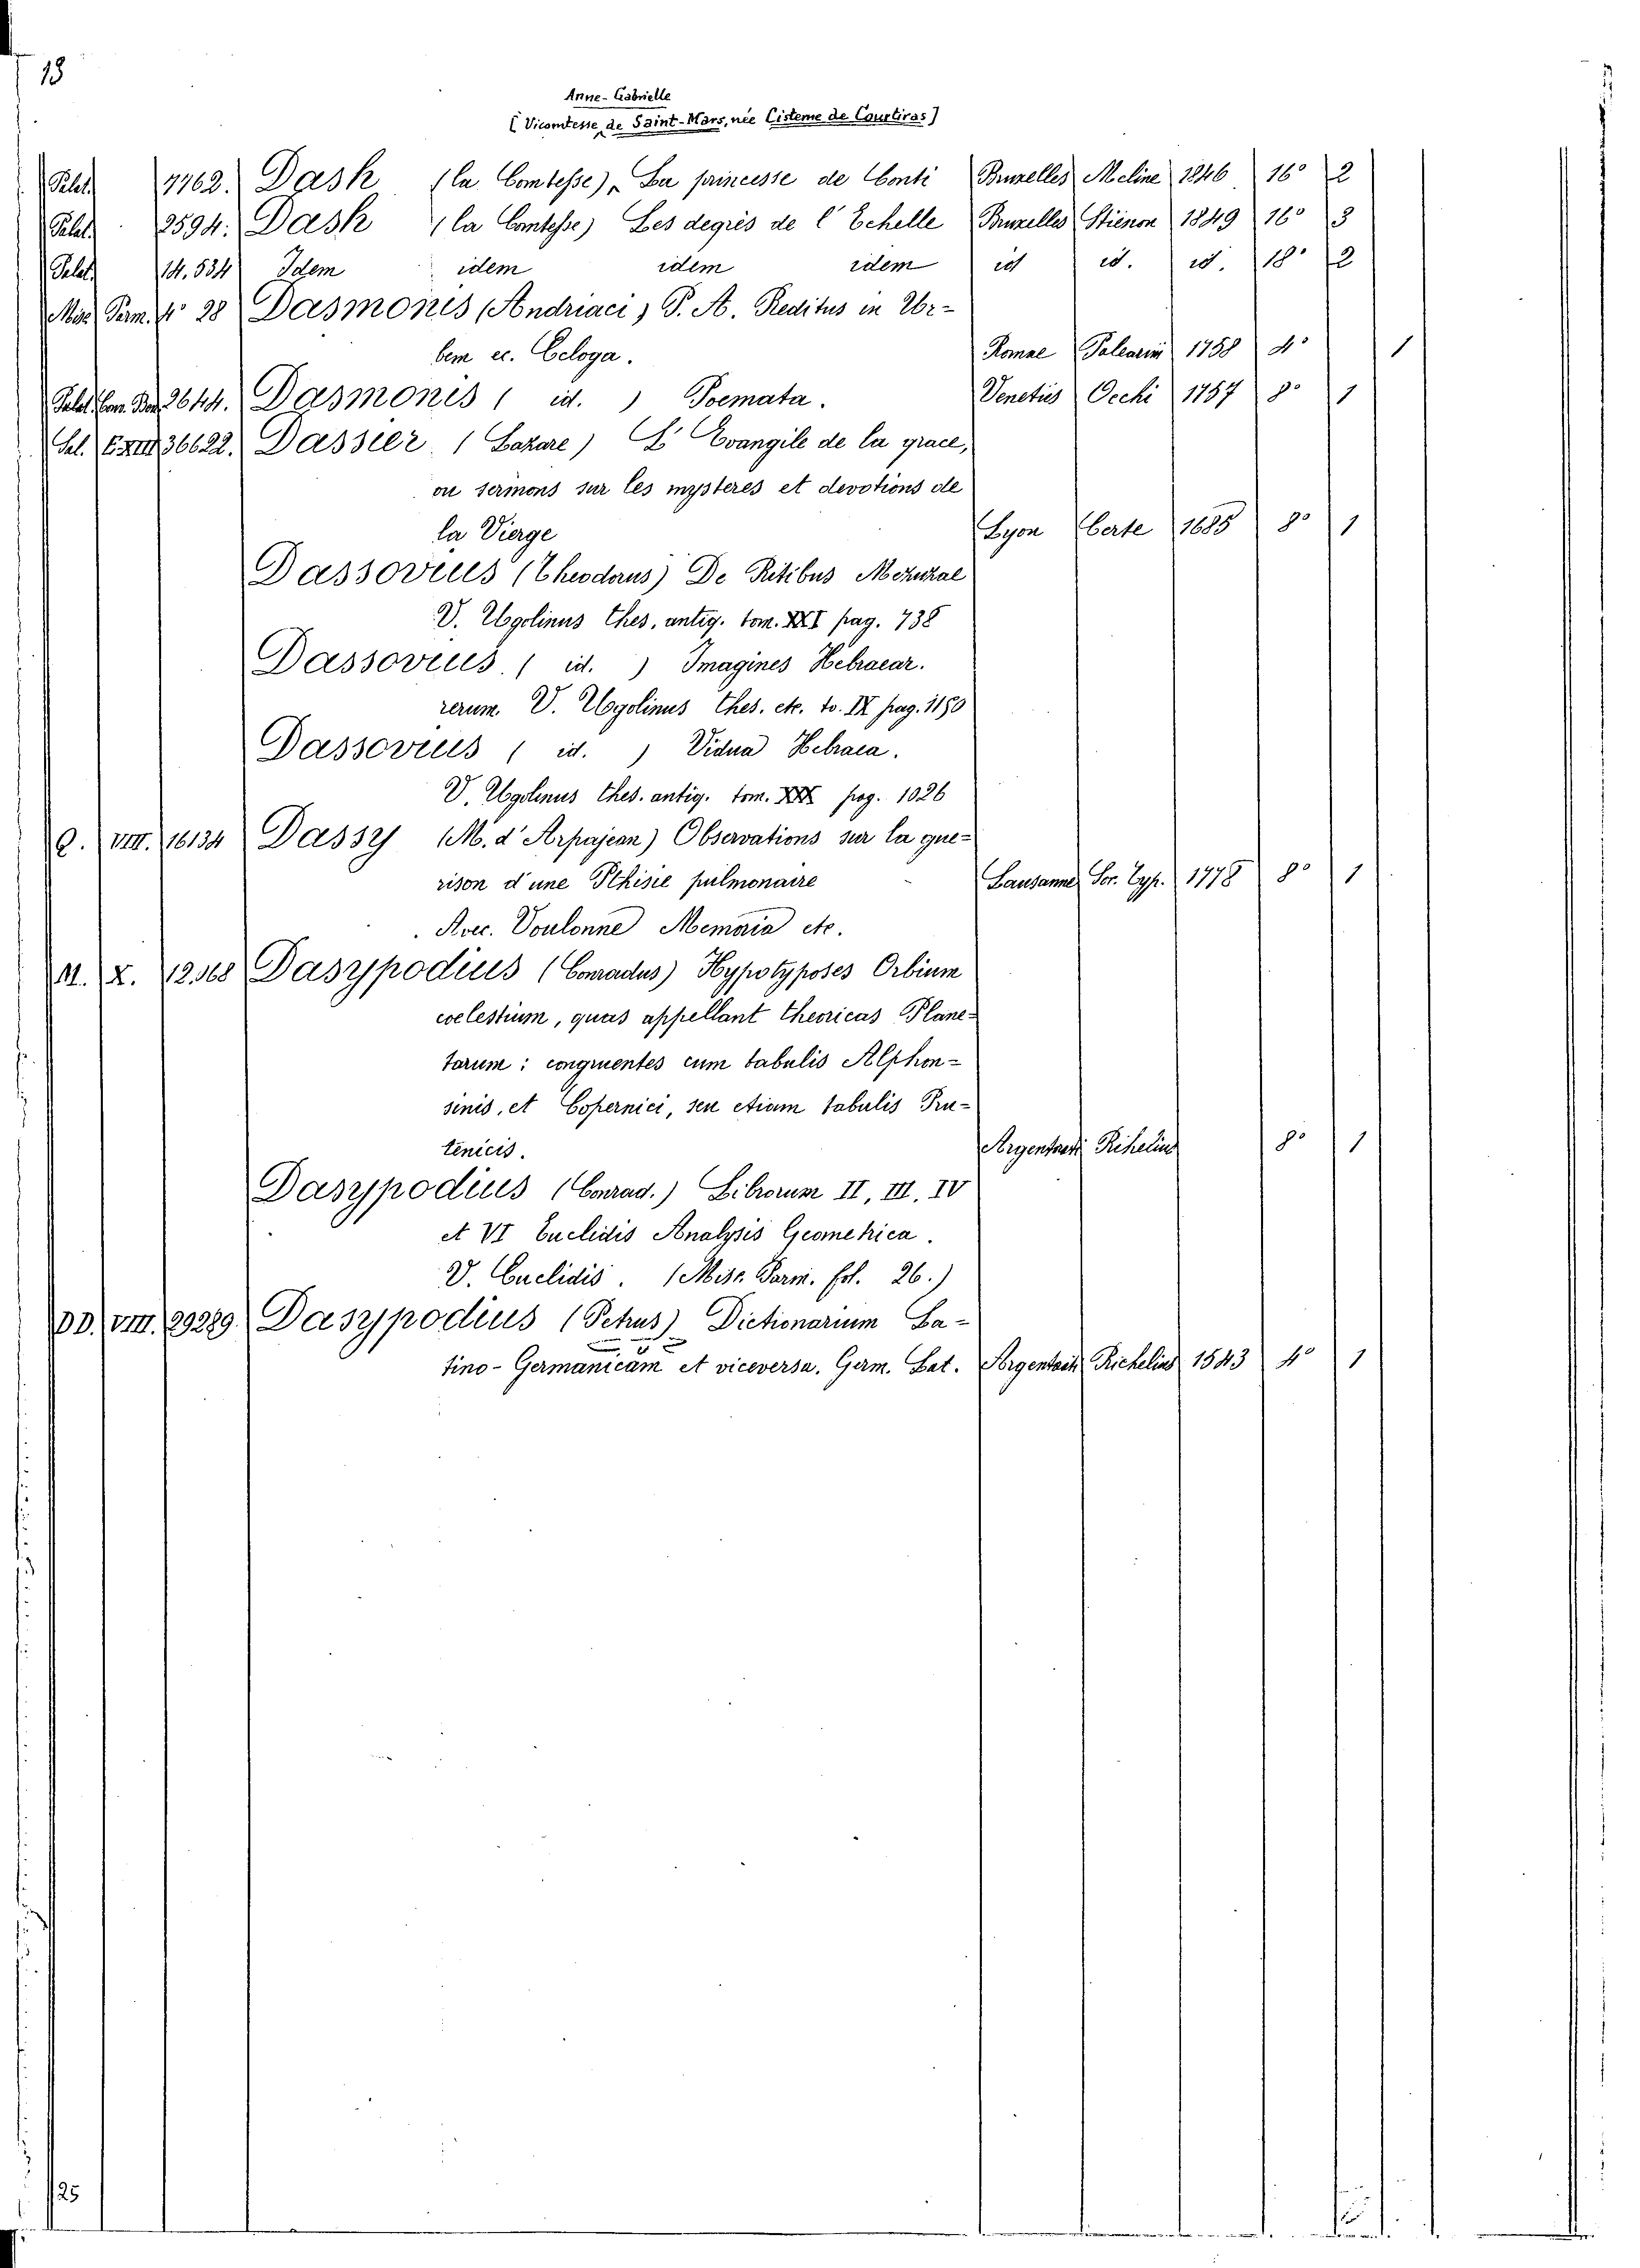 13
Anne-Gabrielle
[Vicomtesse de Saint-Mars, née Cisterne de Courtiras]
Palat. 7762. Dash (la Comtesse), La princesse de Conti Bruxelles Meline 1846 16° 2
Palat. 2594. Dash (la Comtesse) Les degrés de l'Echelle Bruxelles Stienon 1849 16° 3
Palat. 14.534 Idem idem idem idem id id. id. 18° 2
Misc. Parm. 4° 28 Dasmonis (Andriaci) P. A. Reditus in Ur-
bem ec. Ecloga. Romae Palearini 1758 4° 1
Palat. 2644. Dasmonis ( id. ) Poemata. Venetiis Occhi 1757 8° 1
Sal. E. XIII 36622. Dassier (Lazare) L'Evangile de la grace,
ou sermons sur les mysteres et devotions de
la Vierge Lyon Certe 1685 8° 1
Dassovius (Theodorus) De Ritibus Mezuzae
V. Ugolinus Thes. antiq. tom. XXI pag. 738
Dassovius ( id. ) Imagines Hebraear.
rerum. V. Ugolinus Thes. etc. to. IX pag. 1180
Dassovius ( id. ) Vidua Hebraea.
V. Ugolinus Thes. antiq. tom. XXX pag. 1026
Q. VIII. 16134 Dassy (M. d'Arpajean) Observations sur la gue-
rison d'une Pthisie pulmonaire Lausanne Soc. Typ. 1778 8° 1
Avec. Voulonne Memoria etc.
M. X. 12.368 Dasypodius (Conradus) Hypotyposes Orbium
coelestium, quas appellant theoricas Plane-
tarum: congruentes cum tabulis Alphon-
sinis, et Copernici, seu etiam tabulis Pru-
tenicis. Argentorati Rihelius 8° 1
Dasypodius (Conrad.) Librorum II, III, IV
et VI Euclidis Analysis Geometrica.
V. Euclidis. (Misc. Parm. fol. 26.)
DD. VIII. 29289. Dasypodius (Petrus) Dictionarium La-
tino-Germanicum et viceversa. Germ. Lat. Argentorati Richelius 1543 4° 1
25